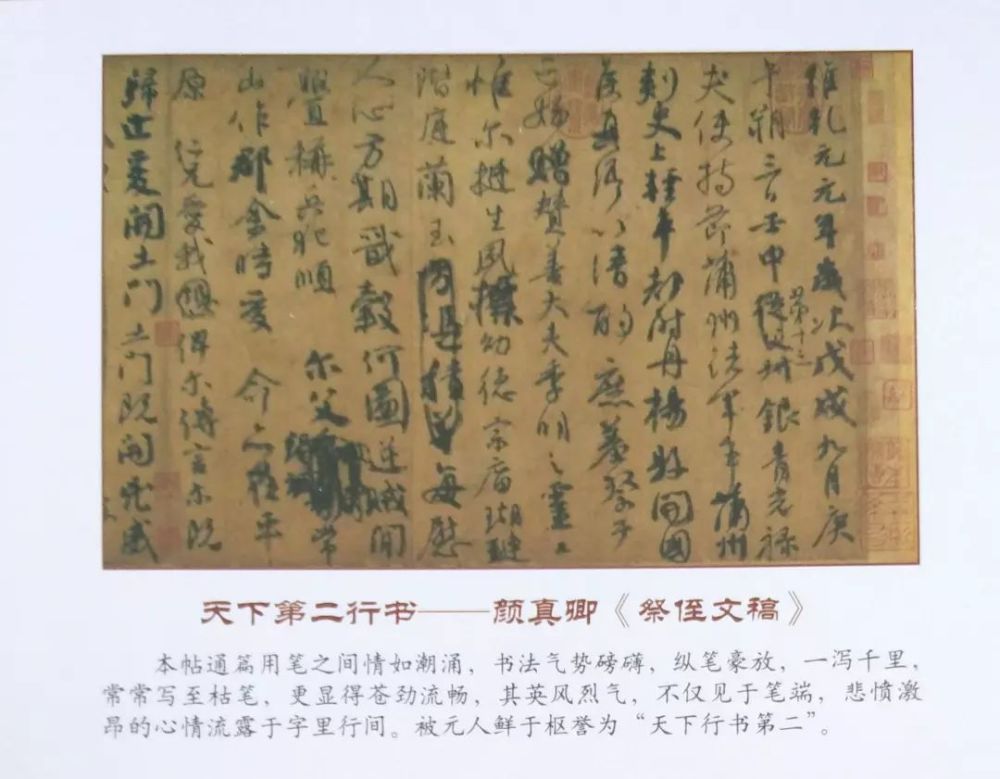 維乾元元年歲次戊戌九月庚
午朔三日壬申第十三從父銀青光祿
夫使持節蒲州諸軍事蒲州
刺史上輕車都尉丹楊縣開國
侯真卿以清酌庶羞祭于
亡姪贈贊善大夫季明之靈曰
惟爾挺生夙標幼德宗廟瑚璉
階庭蘭玉每慰
人心方期戩穀何圖逆賊間
釁稱兵犯順 爾父常
山作郡余時受 命亦在平
原仁兄愛我恐俾爾傳言爾既
歸止爰開土門土門既開凶威
天下第二行书——颜真卿《祭侄文稿》
本帖通篇用笔之间情如潮涌，书法气势磅礴，纵笔豪放，一泻千里，
常常写至枯笔，更显得苍劲流畅，其英风烈气，不仅见于笔端，悲愤激
昂的心情流露于字里行间。被元人鲜于枢誉为“天下行书第二”。